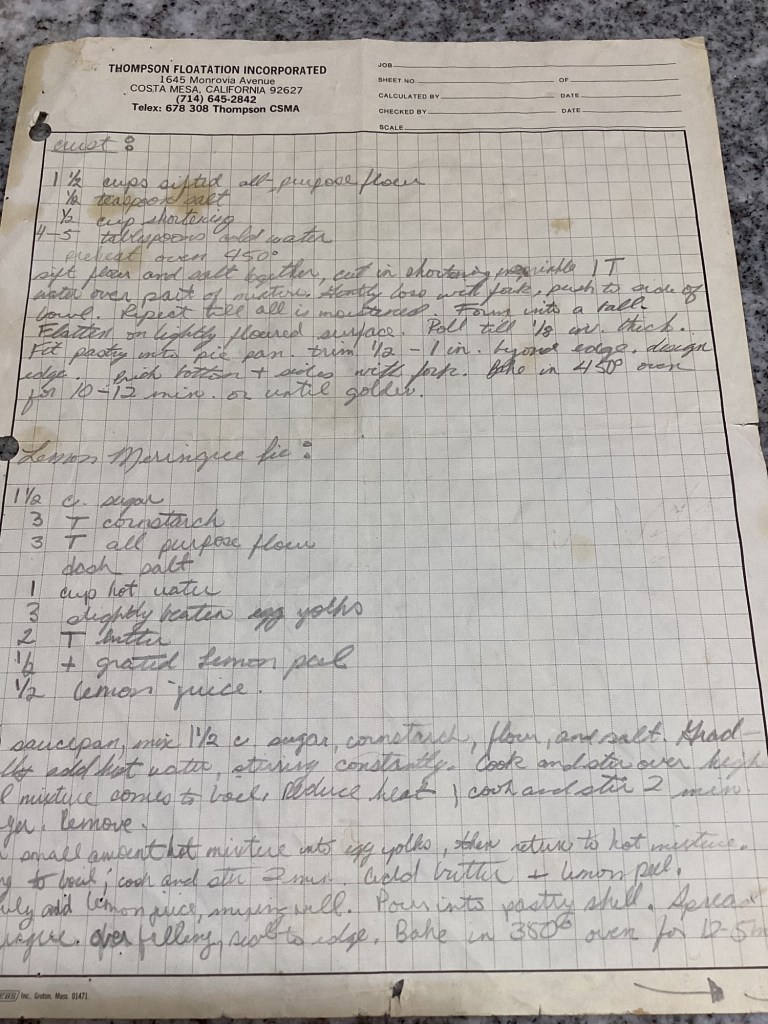 THOMPSON FLOATATION INCORPORATED
1645 Monrovia Avenue
COSTA MESA, CALIFORNIA 92627
(714) 645-2842
Telex: 678 308 Thompson CSMA
JOB
SHEET NO. OF
CALCULATED BY DATE
CHECKED BY DATE
SCALE
crust:
1 1/2 cups sifted all-purpose flour
1/2 teaspoon salt
1/2 cup shortening
4-5 tablespoons cold water
preheat oven 450°
sift flour and salt together, cut in shortening, sprinkle 1 T
water over part of mixture. Gently toss with fork, push to side of
bowl. Repeat till all is moistened. Form into a ball.
Flatten on lightly floured surface. Roll till 1/8 in. thick.
Fit pastry into pie pan. trim 1/2 - 1 in. beyond edge. design
edge. Prick bottom + sides with fork. Bake in 450° oven
for 10-12 min. or until golden.
Lemon Meringue Pie:
1 1/2 c. sugar
3 T cornstarch
3 T all purpose flour
dash salt
1 cup hot water
3 slightly beaten egg yolks
2 T butter
1/2 t grated lemon peel
1/2 lemon juice.
saucepan, mix 1 1/2 c sugar, cornstarch, flour, and salt. Grad-
add hot water, stirring constantly. Cook and stir over high
mixture comes to boil. Reduce heat; cook and stir 2 min.
Remove.
small amount hot mixture into egg yolks, then return to hot mixture.
to boil; cook and stir 2 min. Add butter + lemon peel.
add lemon juice, mixing well. Pour into pastry shell. Spread
over filling, seal to edge. Bake in 350° oven for 12-15
Inc., Groton, Mass. 01471